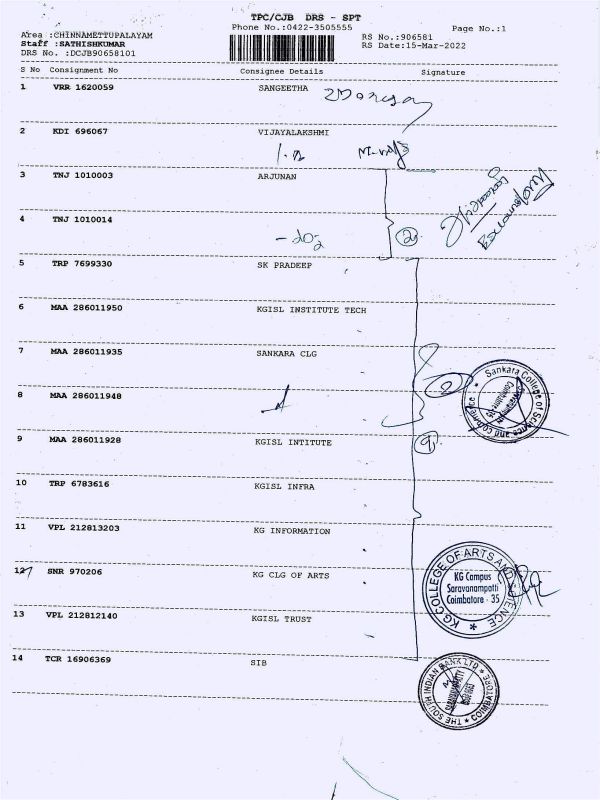 TPC/CJB DRS - SPT
Phone No.:0422-3505555
Page No.:1
Area :CHINNAMETTUPALAYAM
RS No.:906581
Staff :SATHISHKUMAR
RS Date:15-Mar-2022
DRS No. :DCJB90658101
S No Consignment No Consignee Details Signature
1 VRR 1620059 SANGEETHA
2 KDI 696067 VIJAYALAKSHMI
3 TNJ 1010003 ARJUNAN
4 TNJ 1010014
5 TRP 7699330 SK PRADEEP
6 MAA 286011950 KGISL INSTITUTE TECH
7 MAA 286011935 SANKARA CLG
8 MAA 286011948
9 MAA 286011928 KGISL INTITUTE
10 TRP 6783616 KGISL INFRA
11 VPL 212813203 KG INFORMATION
12 SNR 970206 KG CLG OF ARTS
13 VPL 212812140 KGISL TRUST
14 TCR 16906369 SIB
Sankara College of Science and Commerce
KG COLLEGE OF ARTS AND SCIENCE
KG Campus
Saravanampatti
Coimbatore - 35
THE SOUTH INDIAN BANK LTD
COIMBATORE